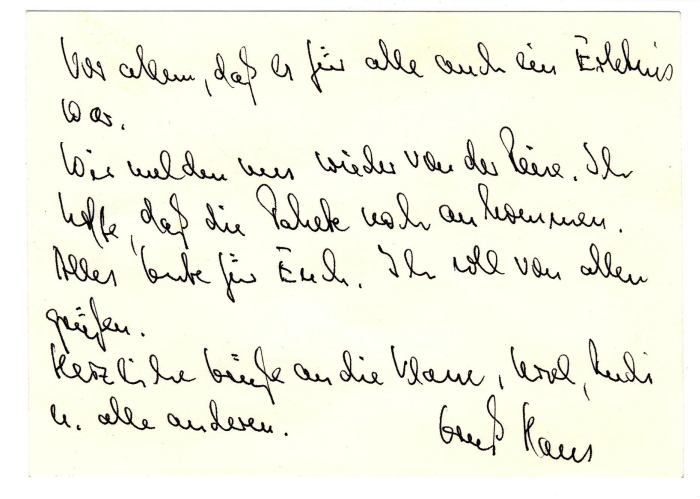 Vor allem, daß es für alle auch ein Erlebnis
war.
Wir melden uns wieder von der Reise. Ich
hoffe, daß die Pakete noch ankommen.
Alles Gute für Euch. Ich soll von allen
grüßen.
Herzliche Grüße an die
u. alle anderen. Gruß Hans